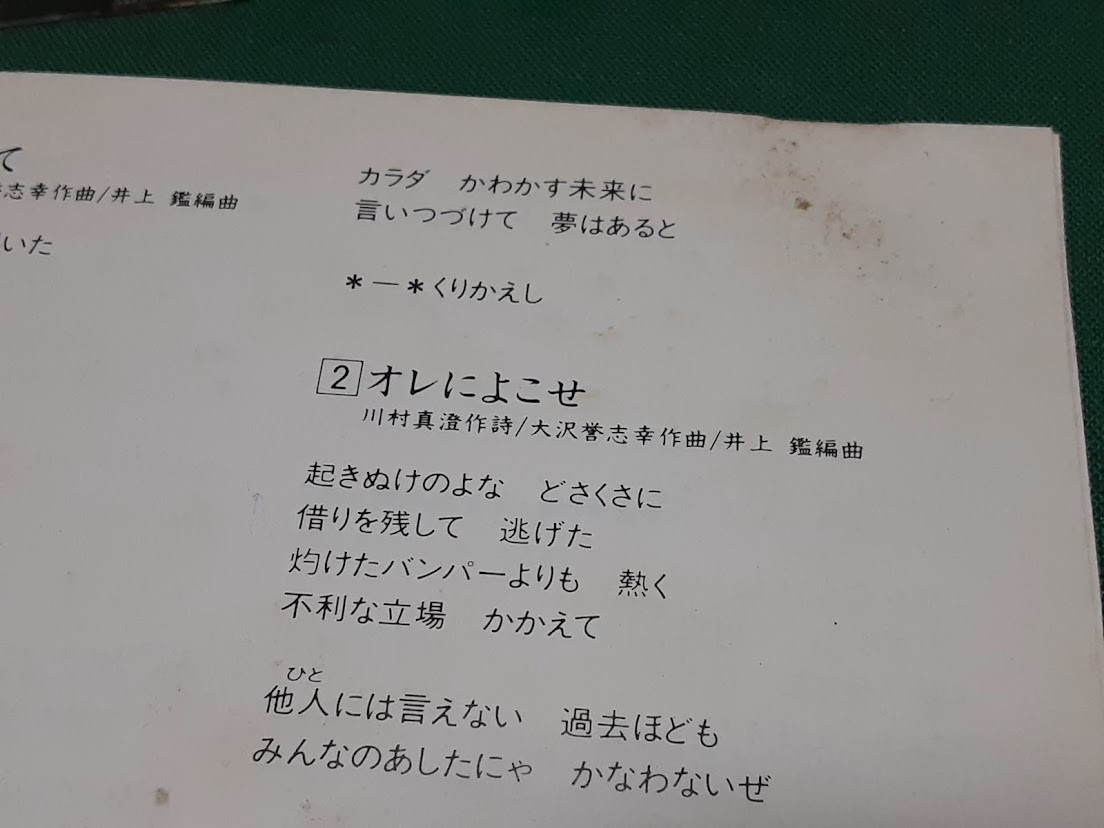 て
志幸作曲/井上 鑑編曲
いた
カラダ　かわかす未来に
言いつづけて　夢はあると
＊―＊くりかえし
2 オレによこせ
川村真澄作詩/大沢誉志幸作曲/井上 鑑編曲
起きぬけのよな　どさくさに
借りを残して　逃げた
灼けたバンパーよりも　熱く
不利な立場　かかえて
ひと
他人には言えない　過去ほども
みんなのあしたにゃ　かなわないぜ